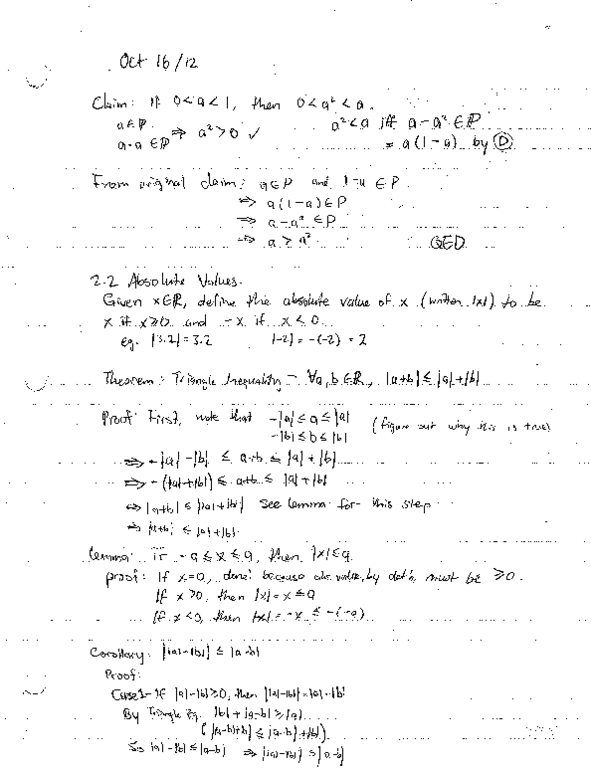 Oct 16/12
Claim: If 0<a<1, then 0<a²<a.
a∈P
a·a∈P ⇒ a²>0 ✓
a²<a iff a-a²∈P
= a(1-a) by D
From original claim: a∈P and 1-a∈P
⇒ a(1-a)∈P
⇒ a-a²∈P
⇒ a>a²
QED
2.2 Absolute Values.
Given x∈R, define the absolute value of x (written |x|) to be
x if x≥0 and -x if x<0
eg. |3.2|=3.2 |-2|=-(-2)=2
Theorem: Triangle Inequality - ∀a,b∈R, |a+b|≤|a|+|b|
Proof: First, note that -|a|≤a≤|a|
-|b|≤b≤|b| (figure out why this is true)
⇒ -|a|-|b| ≤ a+b ≤ |a|+|b|
⇒ -(|a|+|b|) ≤ a+b ≤ |a|+|b|
⇒ |a+b| ≤ ||a|+|b|| See lemma for this step
⇒ |a+b| ≤ |a|+|b|
Lemma: If -a≤x≤a, then |x|≤a.
proof: If x=0, done! because abs value, by def'n, must be ≥0.
If x>0, then |x|=x≤a
If x<0, then |x|=-x ≤ -(-a)
Corollary: ||a|-|b|| ≤ |a-b|
Proof:
Case 1- If |a|-|b|≥0, then ||a|-|b||=|a|-|b|
By Triangle Eq. |b|+|a-b|≥|a|
(|(a-b)+b| ≤ |a-b|+|b|)
So |a|-|b|≤|a-b| ⇒ ||a|-|b||